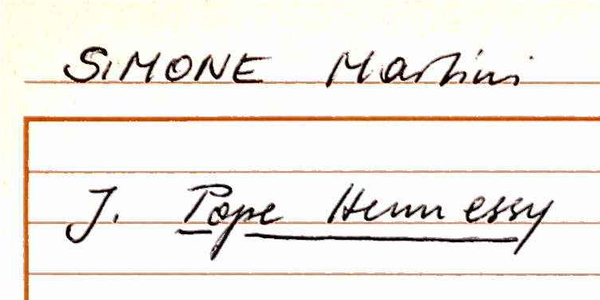 SIMONE Martini
J. Pope Hennessy